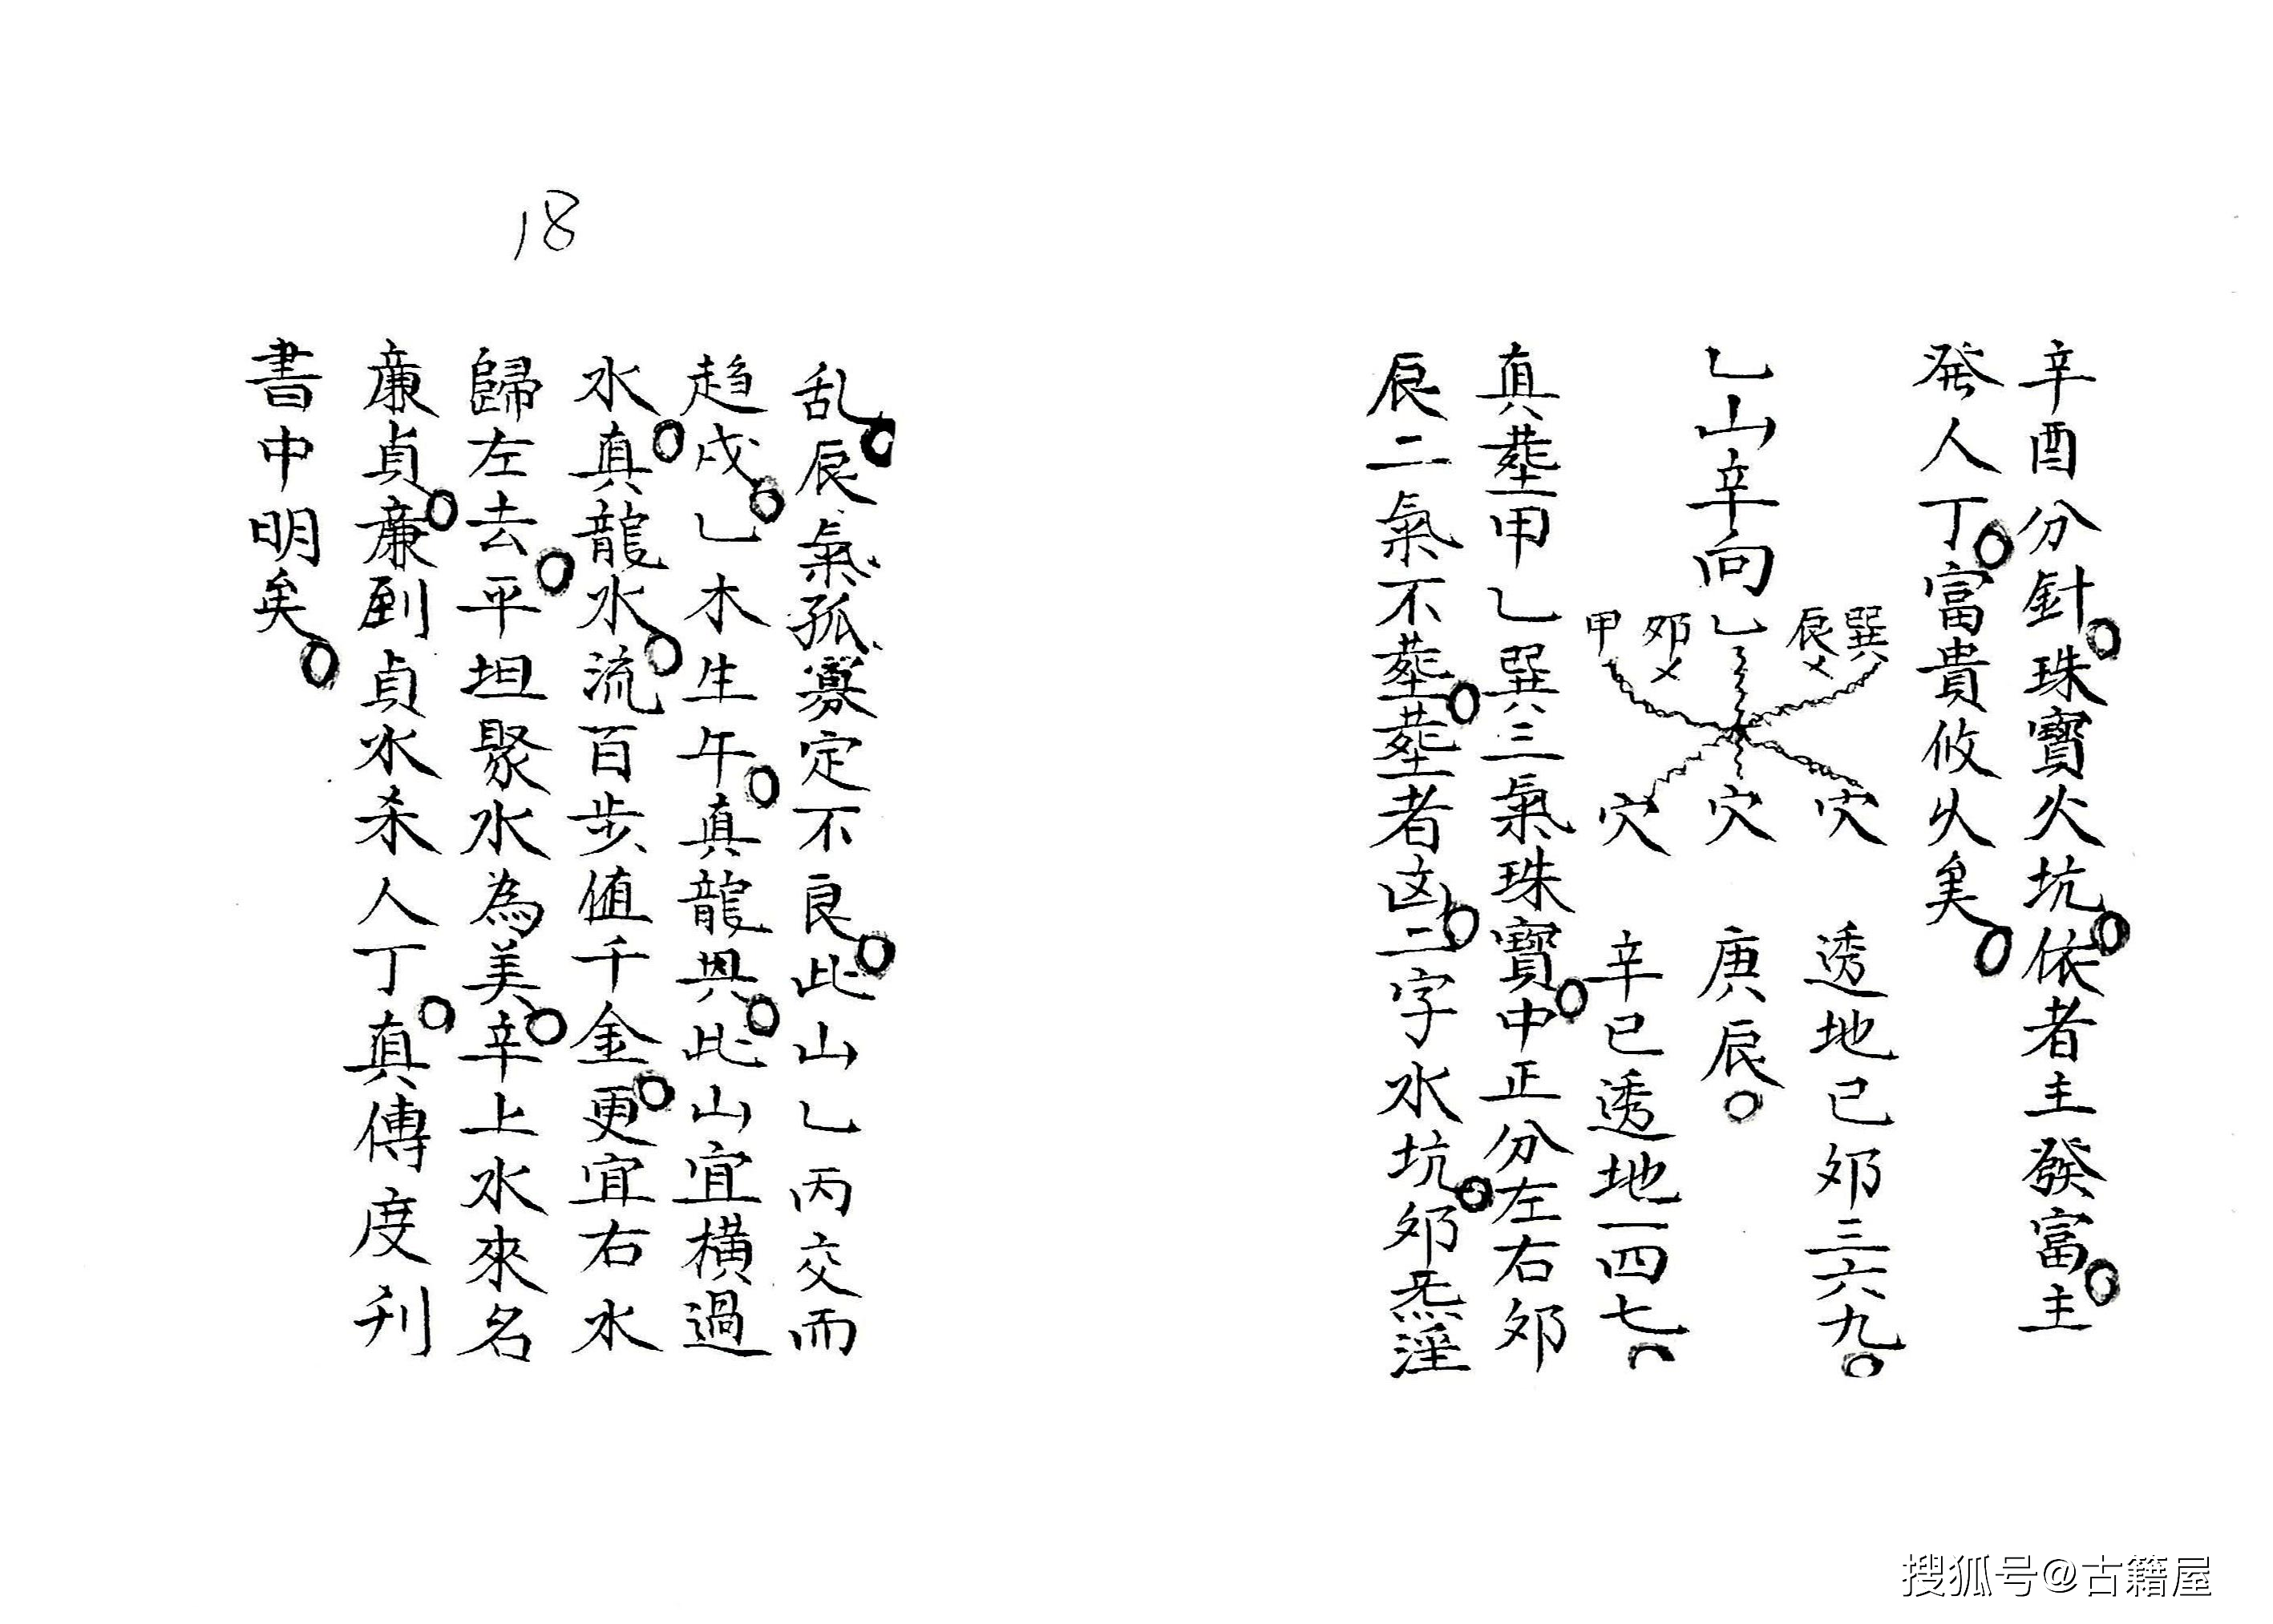 18
辛酉分針。珠寶火坑。依者主發富。主
発人丁。富貴攸攸矣。
乙山辛向
巽 辰 乙 夘 甲
穴 穴 穴
透地己夘三六九。
庚辰。
辛巳透地一四七。
真塟甲乙巽三氣珠寶。中正分左右夘
辰二氣不塟。塟者凶。二字水坑。夘炁淫
乱。辰氣孤寡定不良。此山乙丙交而
趋戌。乙木生午。真龍與。此山宜橫過
水。真龍水。流百步值千金。更宜右水
歸左去。平坦聚水為美。辛上水來名
亷貞。亷到貞水杀人丁。真傳度刋
書中明矣。
搜狐号@古籍屋